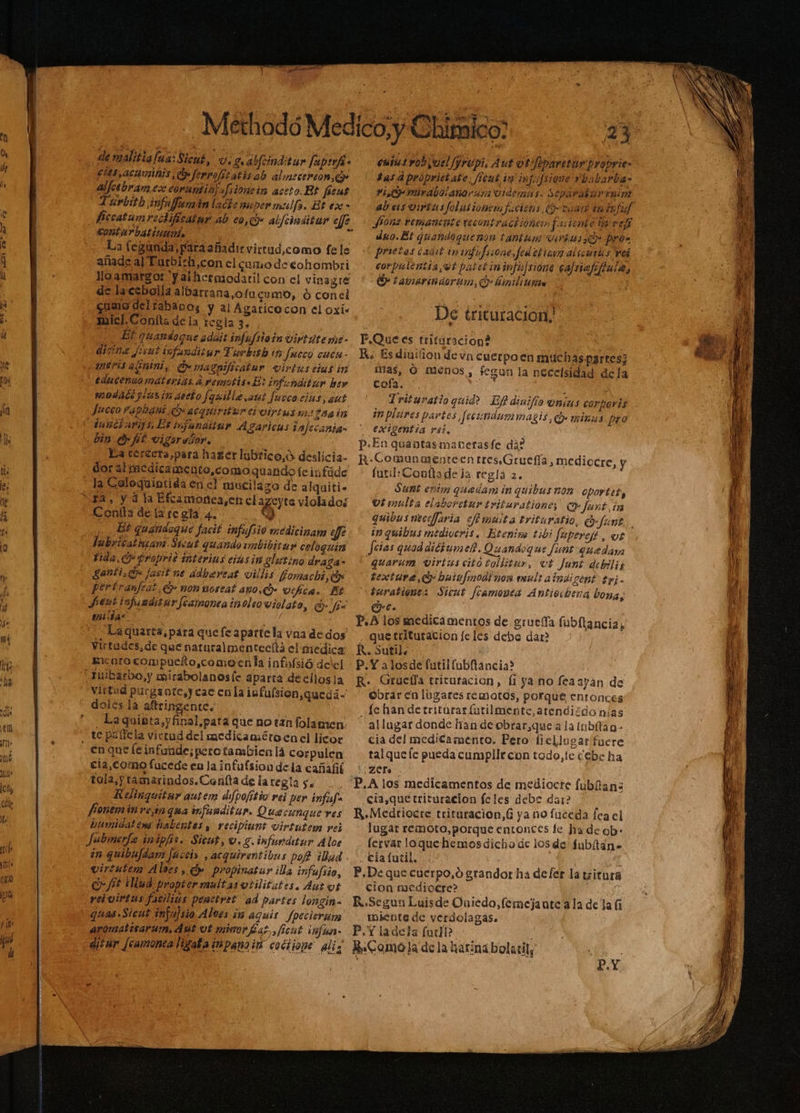 Methodo Medico, y Chimico. 23
de malitia sua: Sicut, v. g. abscinditur superfi-
cies, acuminis, & ferrositatis ab almezereon, &
alscebram ex eorum infusione in aceto. Et sicut
Turbith infussum in lacte nuper mulso. Et ex-
siccatum rectificatur ab eo, & abscinditur esse
conturbatiuum.
La segunda, para añadir virtud, como se le
añade al Turbith, con el çumo de cohombri
llo amargo: y al hermodatil con el vinagre
de la cebolla albarrana, o su çumo, ò con el
çumo del rabano; y al Agarico con el oxi-
miel. Consta de la regla 3.
Et quandoque adait infussio in virtute me-
dicinæ sicut infunditur Turbith in succo cucu-
meris asinini, & magnificatur virtus eius in
educendo materias à remotis. Et infunditur her
modatil plus in aceto squillæ, aut succo eius, aut
succo raphani, & acquiritur ei virtus magna in
iuncturis; Et infunditur Agaricus in secania-
bin & fit vigoratior.
La tercera, para hazer lubrico, ò deslicia-
dor al medicamento, como quando se infūde
la Coloquintida en el mucilago de alquiti-
ra, y à la Escamonea, en el azeyte violado;
Consta de la regla 4.
Et quandoque facit infusio medicinam esse
lubricatiuam: Sicut quando imbibitur coloquin
tida, & propriè interius eius in glutino draga-
ganti, & facit ne adhæreat villis stomachi, &
pertranseat, & non noceat ano, & vesicæ. Et
sicut infunditur scamonea in oleo violato, & si-
milia.
La quarta, para que se aparte la vna de dos
virtudes, de que naturalmente està el medica
mento compuesto, como en la infusiō del
ruibarbo, y mirabolanos se aparta de ellos la
virtud purgante, y cae en la infusion, quedā-
doles la astringente.
La quinta, y final, para que no tan solamen
te passe la virtud del medicamēto en el licor
en que se infunde; pero tambien là corpulen
cia, como sucede en la infussion de la cañafis
tola, y tamarindos. Consta de la regla 5.
Relinquitur autem dispositio rei per infus-
sionem in re, in qua infunditur. Quæcunque res
humidatem habentes, recipiunt virtutem rei
submersæ in ipsis. Sicut, v. g. infunditur Aloe
in quibusdam succis, acquirentibus post illud
virtutem Aloes, & propinatur illa infusio,
& fit illud propter multas vtilitates. Aut vt
rei virtus facilius penetret ad partes longin-
quas. Sicut infusio Aloes in aquis specierum
aromatizarum. Aut vt minor fiat, sicut infun-
ditur scamonea ligata in panno in coctione aliz
cuius rob, vel syrupi. Aut vt separetur proprie-
tas à proprietate, sicut in infussione rhabarba-
ri, & mirabolanorum videmus. Separatur enim
ab eis virtus solutionem faciens, & cadit in infus
sione remanente recontractionem faciente in re
duo. Et quandoque non tantum virtus, & pro-
prietas cadit in infussione, sed etiam alicuius rei
corpulentia, vt patet in infussione cassiæfistulæ,
& tamarindorum, & similium.
De trituracion.
P. Que es trituracion?
R. Es diuision de vn cuerpo en muchas partes;
mas, ò menos, segun la necesidad de la
cosa.
Trituratio quid? Est diuisio vnius corporis
in plures partes, secundum magis, & minus pro
exigentia rei.
P. En quantas maneras se da?
R. Comunmente en tres, Gruessa, mediocre, y
sutil: Consta de la regla 2.
Sunt enim quædam in quibus non oportet,
vt multa elaboretur trituratione, & sunt in
quibus necessaria est multa trituratio, & sunt
in quibus mediocris. Etenim tibi superest, vt
scias quod dictum est. Quandoque sunt quædam
quarum virtus citò tollitur, vt sunt debilis
texture, & huiusmodi non multa indigent tri-
turatione. Sicut scamonea Antiochena bona;
&c.
P. A los medicamentos de gruessa substancia,
que trituracion se les debe dar?
R. Sutil.
P. Y a los de sutil substancia?
R. Gruessa trituracion, si ya no sea ayan de
obrar en lugares remotos, porque entonces
se han de triturar sutilmente, atendiēdo mas
al lugar donde han de obrar, que a la substan-
cia del medicamento. Pero si el lugar fuere
tal que se pueda cumplir con todo, se debe ha
zer.
P. A los medicamentos de mediocre substans
cia, que trituracion se les debe dar?
R. Mediocre trituracion, si ya no suceda sea el
lugar remoto, porque entonces se ha de ob-
servar lo que hemos dicho de los de substan-
cia sutil.
P. De que cuerpo, ò grandor ha de ser la tritura
cion mediocre?
R. Segun Luis de Ouiedo, semejante a la de la si
miente de verdolagas.
P. Y la de la sutil?
R. Como la de la harina bolatil;
P. Y